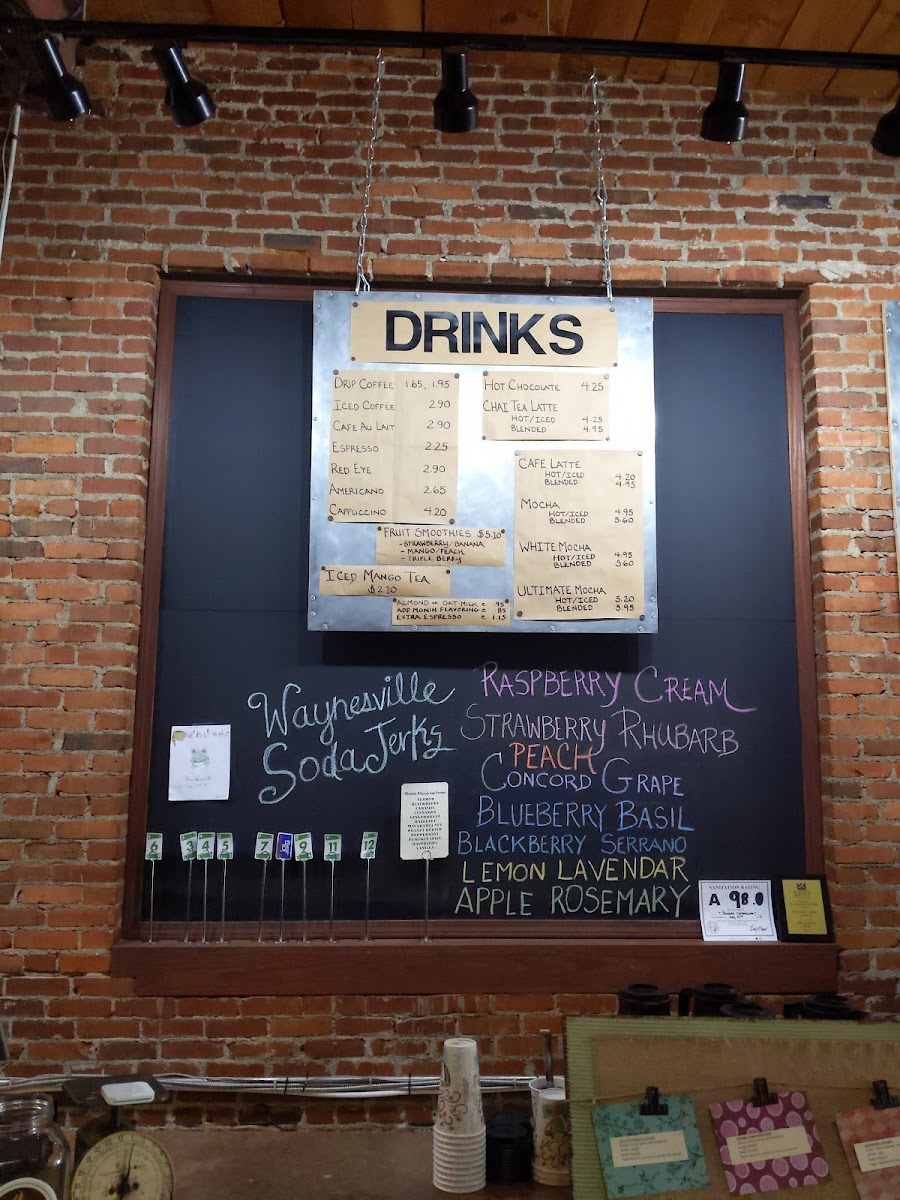 DRINKS
DRIP COFFEE 1.65, 1.95
ICED COFFEE 2.90
CAFE AU LAIT 2.90
ESPRESSO 2.25
RED EYE 2.90
AMERICANO 2.65
CAPPUCCINO 4.20
HOT CHOCOLATE 4.25
CHAI TEA LATTE
HOT/ICED 4.25
BLENDED 4.95
CAFE LATTE
HOT/ICED 4.20
BLENDED 4.95
MOCHA
HOT/ICED 4.95
BLENDED 5.60
WHITE MOCHA
HOT/ICED 4.95
BLENDED 5.60
ULTIMATE MOCHA
HOT/ICED 5.20
BLENDED 5.95
FRUIT SMOOTHIES $5.10
- STRAWBERRY/BANANA
- MANGO/PEACH
- TRIPLE BERRY
ICED MANGO TEA
$2.10
ALMOND OR OAT MILK .95
ADD MONIN FLAVORING .85
EXTRA ESPRESSO 1.15
Waynesville
Soda Jerks
RASPBERRY CREAM
STRAWBERRY RHUBARB
PEACH
CONCORD GRAPE
BLUEBERRY BASIL
BLACKBERRY SERRANO
LEMON LAVENDAR
APPLE ROSEMARY
6 3 4 5 7 9 11 12
SANITATION RATING
A 98.0